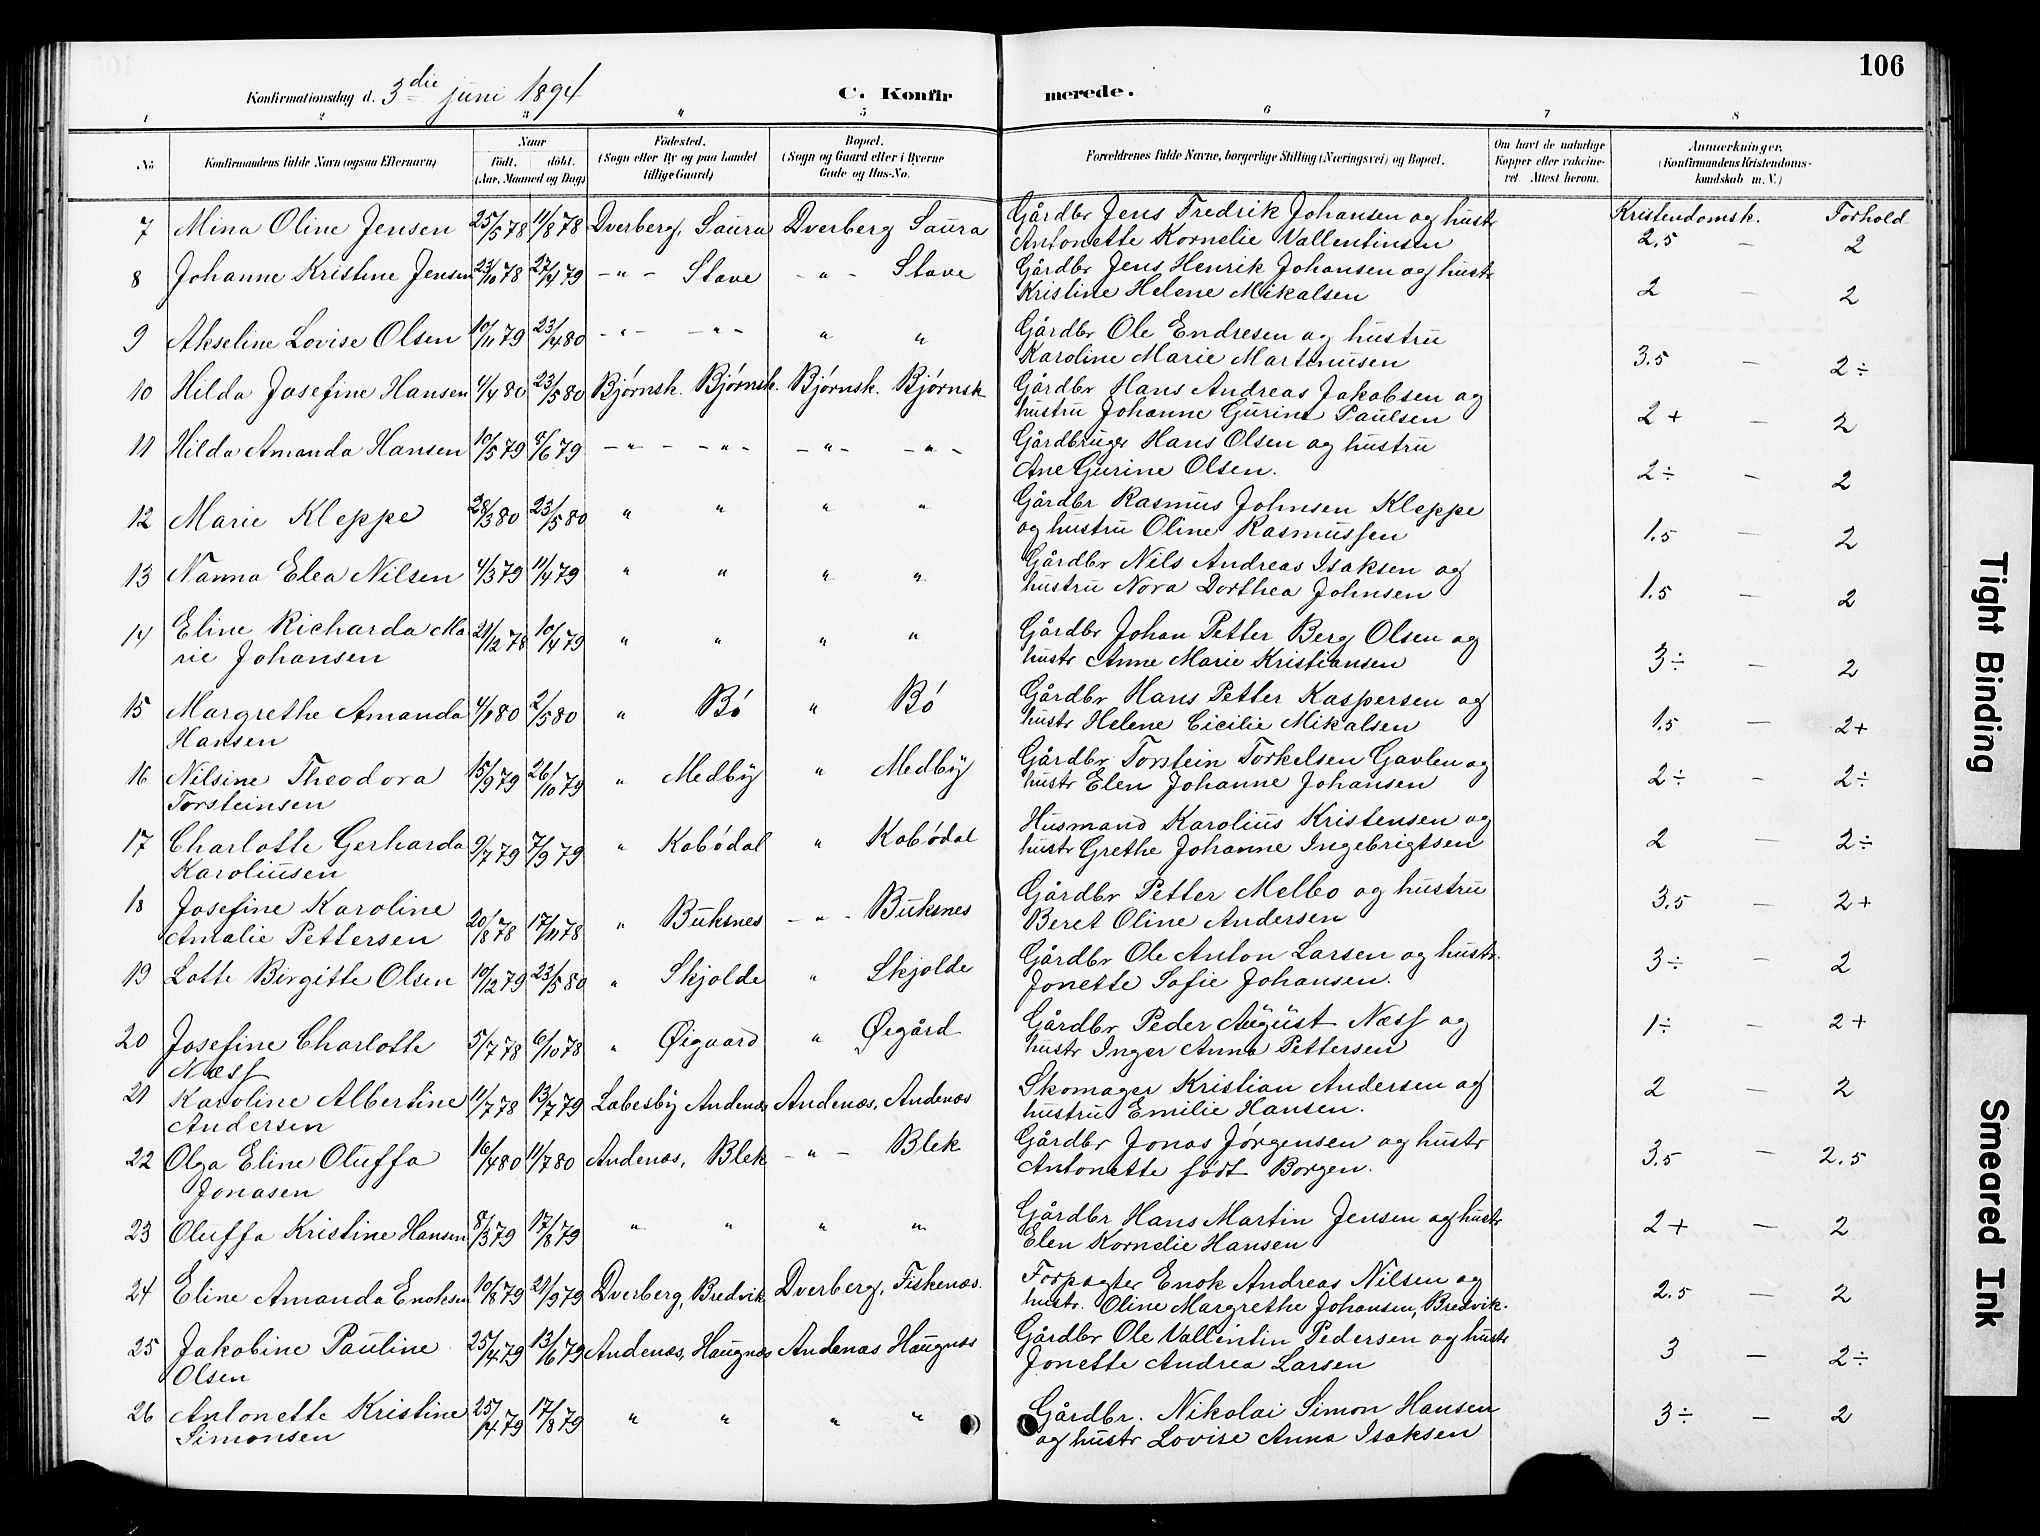 106
Konfirmationsdag d. 3die juni 1894 C. Konfirmerede.
1 2 3 4 5 6 7 8
No Konfirmandens fulde Navn (ogsaa Efternavn) Naar født. døbt. (Aar, Maaned og Dag) Fødested. (Sogn eller By og paa Landet tillige Gaard) Bopæl. (Sogn og Gaard eller i Byerne Gade og Hus-No. Forældrenes fulde Navne, borgerlige Stilling (Næringsvei) og Bopæl. Om havt de naturlige Kopper eller vaccineret. Attest herom. Anmærkninger. (Konfirmandens Kristendomskundskab m. V.)
Kristendomsk. Forhold
7 Mina Oline Jensen 25/5 78 11/8 78 Dverberg, Saura Dverberg Saura Gårdbr Jens Fredrik Johansen og hustr
Antonette Kornelie Vallentinsen 2.5 – 2
8 Johanne Kristine Jensen 23/10 78 27/4 79 –"– Stave –"– Stave Gårdbr Jens Henrik Johansen og hustr
Kristine Helene Mikalsen 2 – 2
9 Akseline Lovise Olsen 10/11 79 23/4 80 –"– –"– " " Gårdbr Ole Endresen og hustru
Karoline Marie Martinusen 3.5 – 2÷
10 Hilda Josefine Hansen 4/4 80 23/5 80 Bjørnsk. Bjørnsk. Bjørnsk. Bjørnsk Gårdbr Hans Andreas Jakobsen og
hustru Johanne Gurine Paulsen 2+ – 2
11 Hilda Amanda Hansen 10/5 79 8/6 79 –"– –"– –"– –"– Gårdbruger Hans Olsen og hustru
Ane Gurine Olsen. 2÷ – 2
12 Marie Kleppe 28/3 80 23/5 80 " " " " Gårdbr Rasmus Johnsen Kleppe
og hustru Oline Rasmussen 1.5 – 2
13 Nanna Elea Nilsen 4/3 79 11/4 79 " " " " Gårdbr Nils Andreas Isaksen og
hustru Nora Dorthea Johnsen 1.5 – 2
14 Eline Richarda Ma 21/12 78 10/4 79 " " " " Gårdbr Johan Petter Berg Olsen og
rie Johansen hustr Anne Marie Kristiansen 3÷ – 2
15 Margrethe Amanda 4/1 80 2/5 80 " Bø " Bø Gårdbr Hans Petter Kaspersen og
Hansen hustr Helene Cicilie Mikalsen 1.5 – 2+
16 Nilsine Theodora 15/9 79 26/10 79 " Medby " Medby Gårdbr Torstein Torkelsen Gavlen og
Torsteinsen hustr Elen Johanne Johansen 2÷ – 2÷
17 Charlotte Gerharda 9/7 79 7/9 79 " Kobødal " Kobødal Husmand Karolius Kristensen og
Karoliusen hustr Grethe Johanne Ingebrigtsen 2 – 2÷
18 Josefine Karoline 20/8 78 17/11 78 " Buksnes –"– Buksnes Gårdbr Petter Melbo og hustru
Amalie Pettersen Beret Oline Andersen 3.5 – 2+
19 Lotte Birgitte Olsen 10/12 79 23/5 80 " Skjolde " Skjolde Gårdbr Ole Anton Larsen og hustr.
Jonette Sofie Johansen. 3÷ – 2
20 Josefine Charlotte 5/7 78 6/10 78 " Øigaard " Øegård Gårdbr Peder August Næss og
Næss hustr Inger Anna Pettersen 1÷ – 2+
21 Karoline Albertine 11/7 78 13/7 79 Lebesby Andenæs Andenæs, Andenæs Skomager Kristian Andersen og
Andersen hustru Emilie Hansen. 2 – 2
22 Olga Eline Oluffa 16/4 80 11/7 80 Andenæs, Blek –"– Blek Gårdbr Jonas Jørgensen og hustr
Jonasen Antonette født Borgen. 3.5 – 2.5
23 Oluffa Kristine Hansen 8/3 79 17/8 79 " " " " Gårdbr Hans Martin Jensen og hustr
Elen Kornelie Hansen 2+ – 2
24 Eline Amanda Enoksen 10/8 79 21/9 79 Dverberg, Bredvik Dverberg, Fiskenæs. Forpagter Enok Andreas Nilsen og
hustr. Oline Margrethe Johansen, Bredvik. 2.5 – 2
25 Jakobine Pauline 25/4 79 13/6 79 Andenæs, Haugnæs Andenæs Haugnæs Gårdbr Ole Vallentin Pedersen og hustr
Olsen Jonette Andrea Larsen 3 – 2÷
26 Antonette Kristine 25/4 79 17/8 79 " " " " Gårdbr. Nikolai Simon Hansen
Simonsen og hustr Lovise Anna Isaksen 3÷ – 2
Tight Binding
Smeared Ink